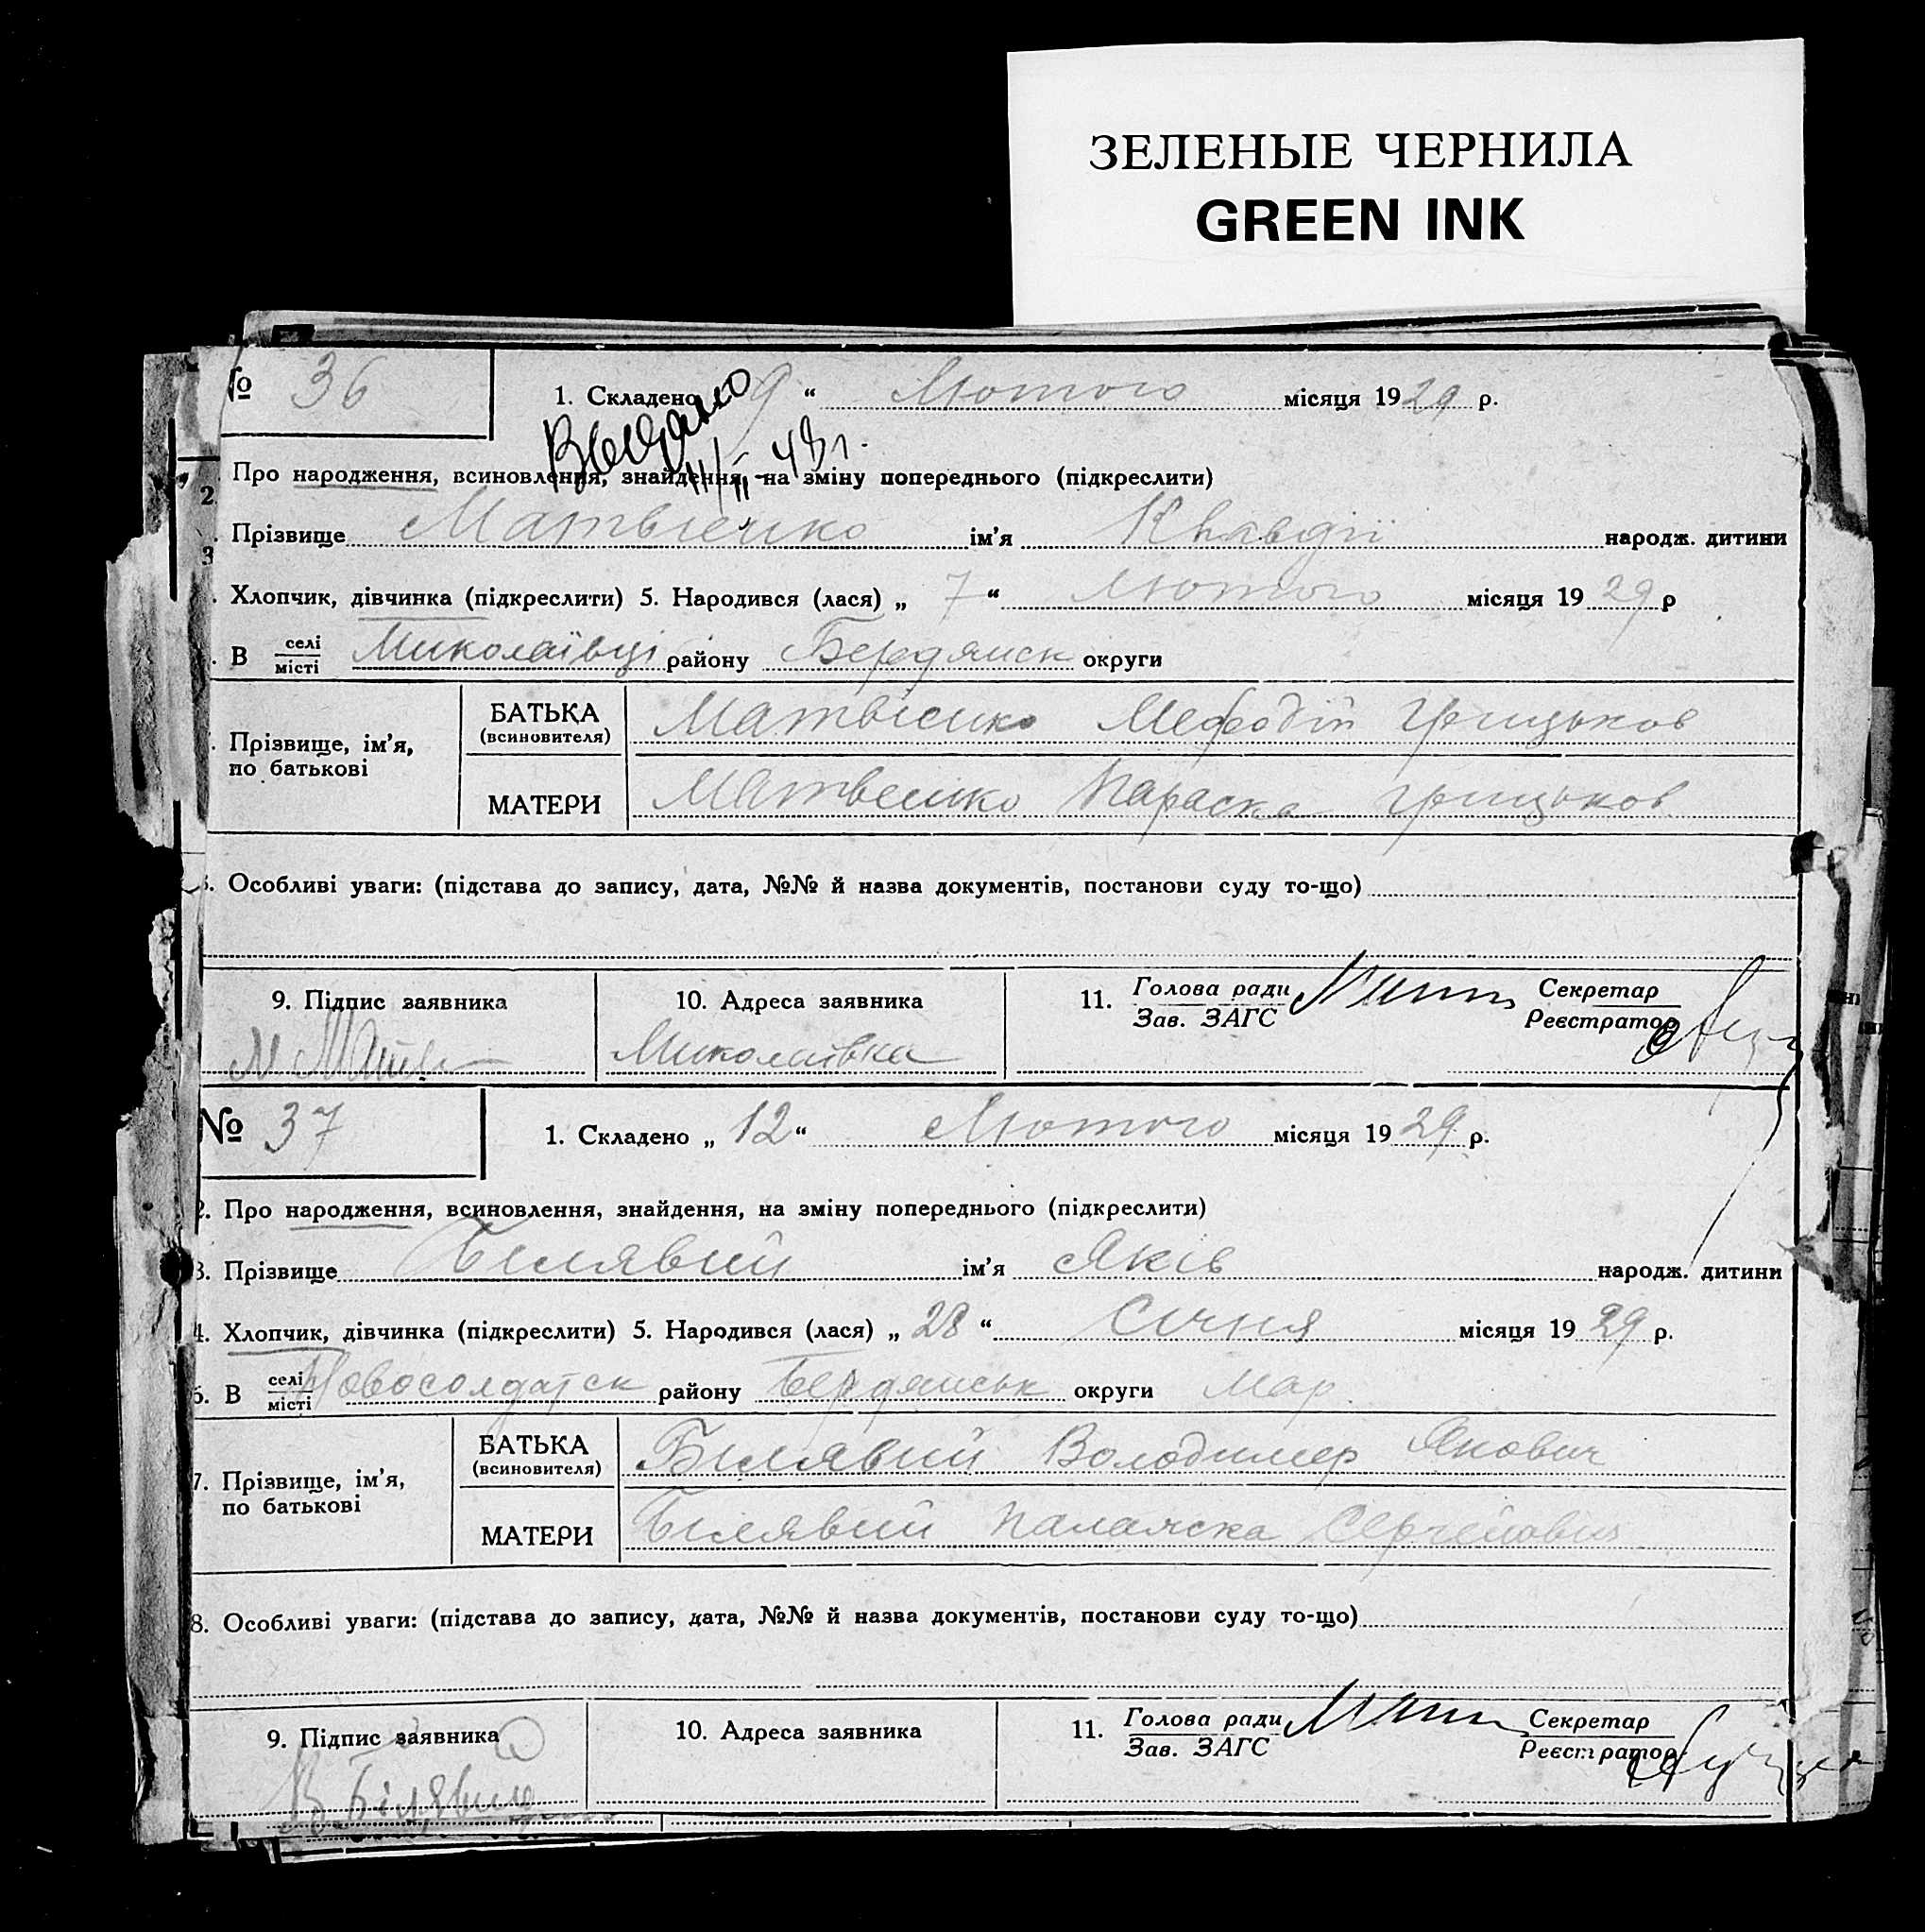 ЗЕЛЕНЫЕ ЧЕРНИЛА
GREEN INK
№ 36
1. Складено 9 “ Лютого місяця 1929 р.
Выдано
11/II-48 г.
2
Про народження, всиновлення, знайдення, на зміну попереднього (підкреслити)
3
. Прізвище Матвієнко ім’я Клавдії народж. дитини
. Хлопчик, дівчинка (підкреслити) 5. Народився (лася) „ 7 “ Лютого місяця 1929 р
. В селі/місті Миколаївці району Бердянск округи
. Прізвище, ім’я, по батькові
БАТЬКА (всиновителя) Матвієнко Мефодій Грицьков
МАТЕРИ Матвеенко Параска Грицьков
. Особливі уваги: (підстава до запису, дата, №№ й назва документів, постанови суду то-що)
9. Підпис заявника 10. Адреса заявника 11. Голова ради/Зав. ЗАГС Секретар/Реєстратор
М Матв Миколаївка
№ 37
1. Складено „ 12 “ Лютого місяця 1929 р.
2. Про народження, всиновлення, знайдення, на зміну попереднього (підкреслити)
3. Прізвище Білявий ім’я Яків народж. дитини
4. Хлопчик, дівчинка (підкреслити) 5. Народився (лася) „ 28 “ Січня місяця 1929 р.
6. В селі/місті Новосолдатск району Бердянськ округи Мар.
7. Прізвище, ім’я, по батькові
БАТЬКА (всиновителя) Білявий Володимер Якович
МАТЕРИ Білявий Палажка Сергейовна
8. Особливі уваги: (підстава до запису, дата, №№ й назва документів, постанови суду то-що)
9. Підпис заявника 10. Адреса заявника 11. Голова ради/Зав. ЗАГС Секретар/Реєстратор
В Білявий